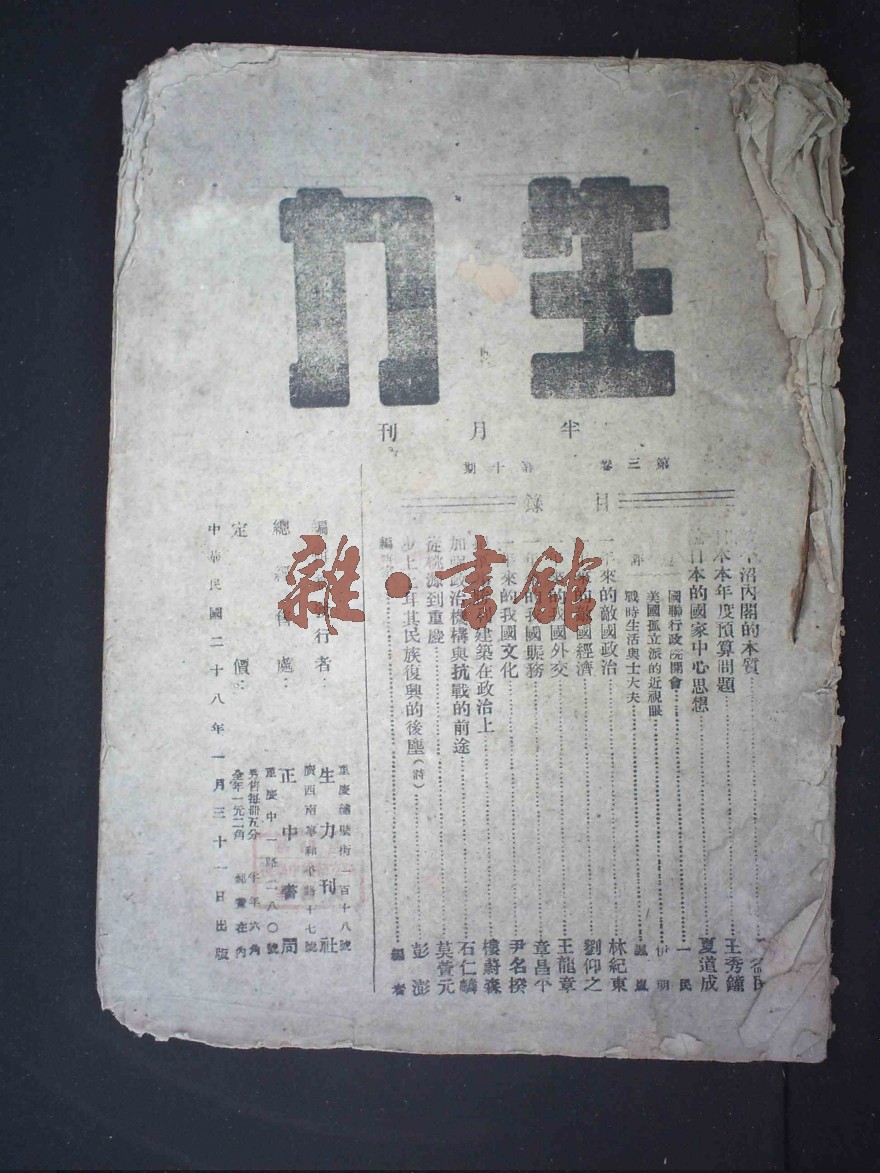 生力
半月刊
第三卷 第十期
目錄
沼內閣的本質
本年度預算問題 王秀鐘
日本的國家中心思想 夏道成
國聯行政院開會 一民
美國孤立派的近視眼 伊明
戰時生活與士大夫
一年來的敵國政治 林紀東
的敵國經濟 劉仰之
的我國外交 王龍章
一年 的我國賑務 章昌平
一年來的我國文化 尹名揆
建築在政治上 樓蔚森
加強政治機構與抗戰的前途 石仁麟
從桃源到重慶 莫萱元
步上土耳其民族復興的後塵(詩) 彭澎
編 編者
編 行者: 生力刊社
重慶 街一百十八號
廣西南寧 十七號
總經售處: 正中書局
重慶中一路二八〇號
定價: 零售每冊五分 半年六角
全年一元二角 郵費在內
中華民國二十八年一月三十一日出版
雜·書館